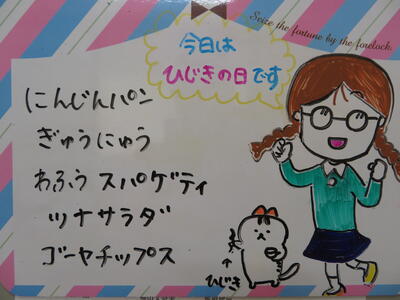 Seize the fortune by the forelock.
今日は
ひじきの日です
にんじんパン
ぎゅうにゅう
わふう スパゲティ
ツナサラダ
ゴーヤチップス
↑
ひじき